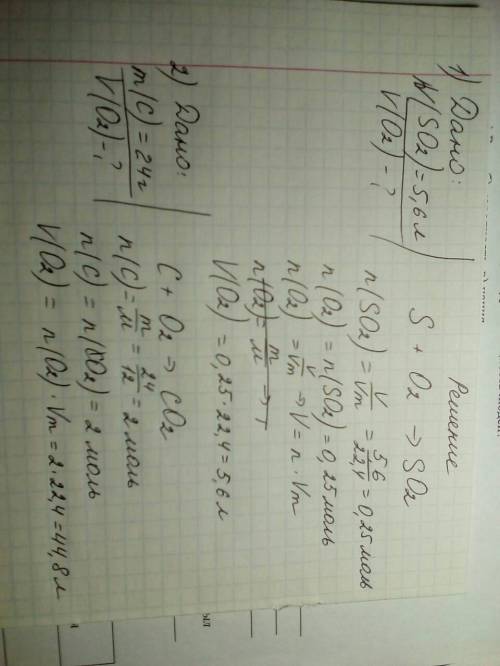 Решение
1) Дано:
V(SO2) = 5,6 л
V(O2) - ?
S + O2 → SO2
n(SO2) = V/Vm = 5,6/22,4 = 0,25 моль
n(O2) = n(SO2) = 0,25 моль
n(O2) = V/Vm ⇒ V = n · Vm
n(O2) = m/M →
V(O2) = 0,25 · 22,4 = 5,6 л
2) Дано:
m(C) = 24 г
V(O2) - ?
C + O2 → CO2
n(C) = m/M = 24/12 = 2 моль
n(C) = n(O2) = 2 моль
V(O2) = n(O2) · Vm = 2 · 22,4 = 44,8 л